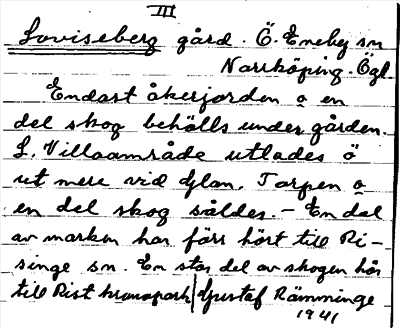 III
Loviseberg gård. Ö. Eneby sn
Norrköping. Ögl.
Endast åkerjorden o en
del skog behölls under gården.
L. Villaområde utlades ö
ut mera vid Glan. Torpen o
en del skog såldes. - En del
av marken har förr hört till Ri-
singe sn. En stor del av skogen hör
till Rist kronopark / Gustaf Rämminge
1941